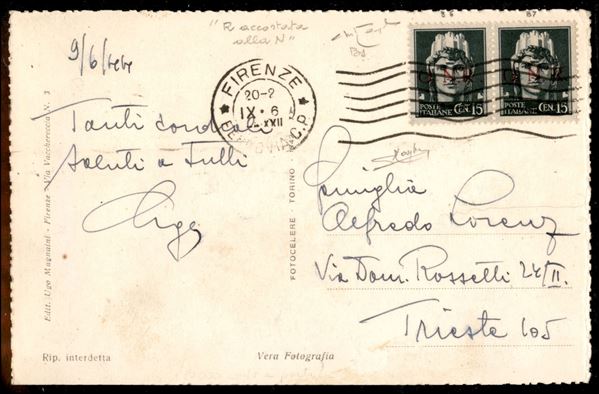 "R accostata
alla N"
9/6/
FIRENZE
20-2
IX · 6
XXII
POSTE
ITALIANE CEN. 15
POSTE
ITALIANE CEN. 15
Tanti cordiali
saluti a Tutti
Famiglia
Alfredo Lorenz
Via Dom. Rossetti 24/II.
Trieste 105
Edit. Ugo Magnaini - Firenze - Via Vacchereccia N. 3
FOTOCELERE TORINO
Rip. interdetta
Vera Fotografia